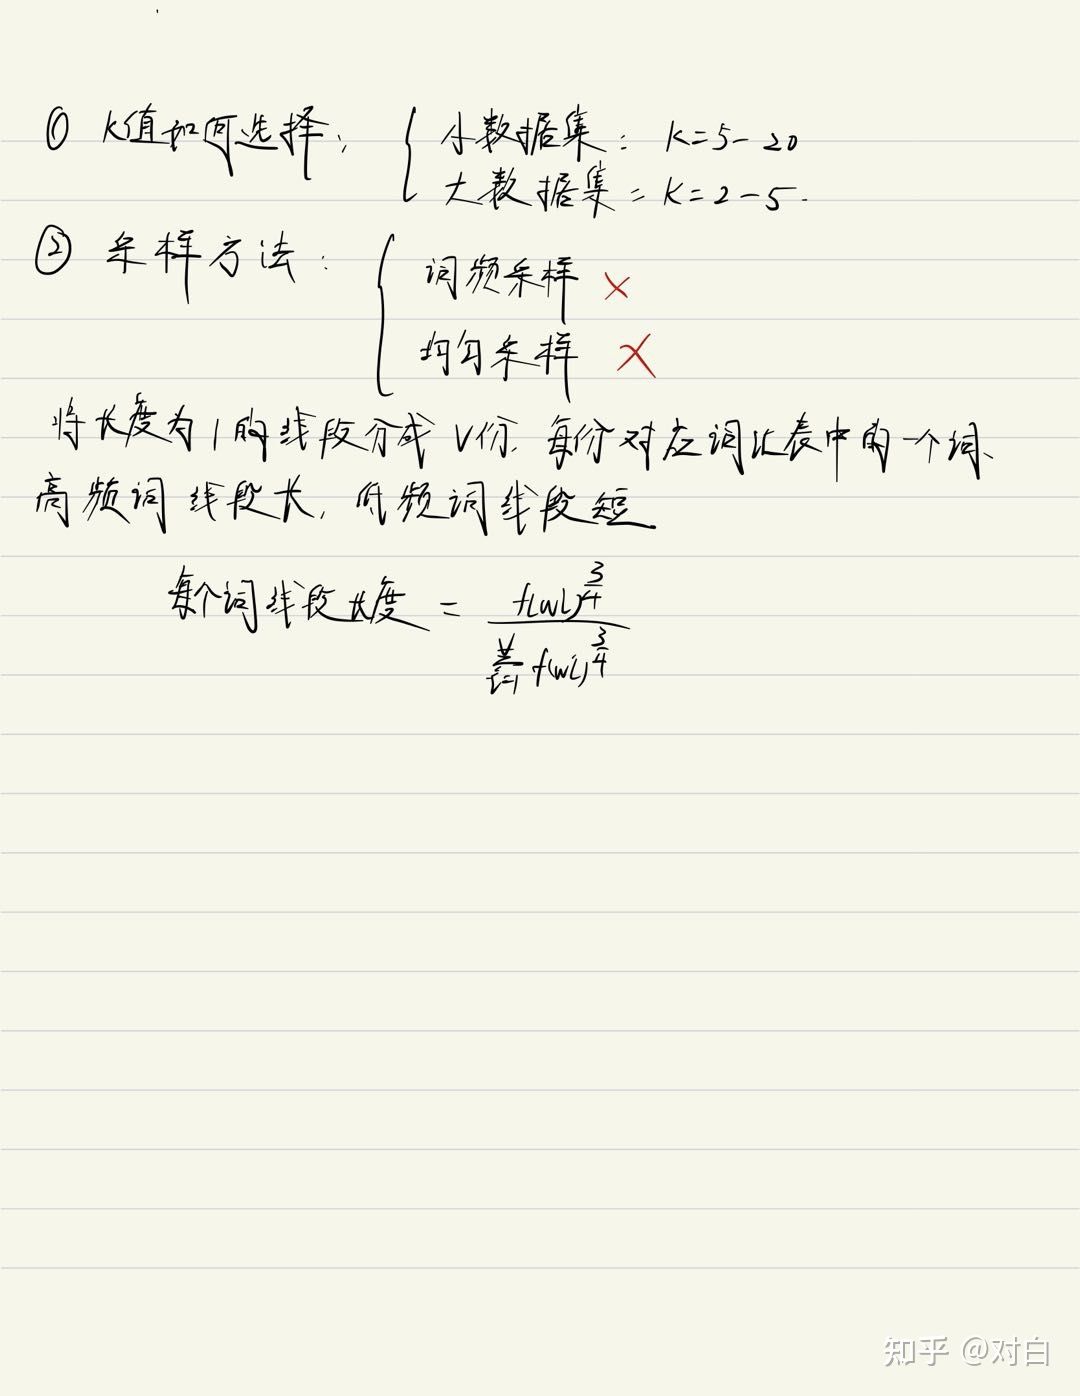 ① K值如何选择: { 小数据集: K=5-20
大数据集: K=2-5.
② 采样方法: { 词频采样 ×
均匀采样 ×
将长度为1的线段分成V份,每份对应词汇表中的一个词、
高频词线段长,低频词线段短.
每个词线段长度 = f(wi)^{3/4} / ∑_{i=1}^{V} f(wi)^{3/4}
知乎 @对白